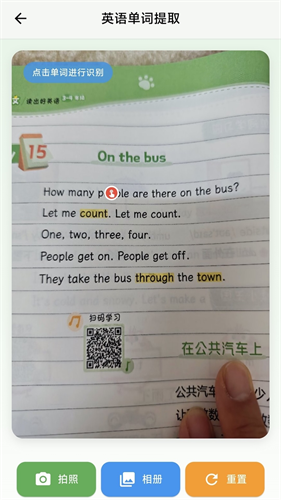 英语单词提取
点击单词进行识别
读出好英语
15
On the bus
How many people are there on the bus?
Let me count. Let me count.
One, two, three, four.
People get on. People get off.
They take the bus through the town.
扫码学习
在公共汽车上
公共汽车
拍照
相册
重置